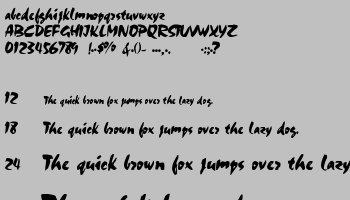 abcdefghijklmnopqrstuvwxyz
ABCDEFGHIJKLMNOPQRSTUVWXYZ
0123456789 !..$% &.()- ...,. :;?
12 The quick brown fox jumps over the lazy dog.
18 The quick brown fox jumps over the lazy dog.
24 The quick brown fox jumps over the lazy